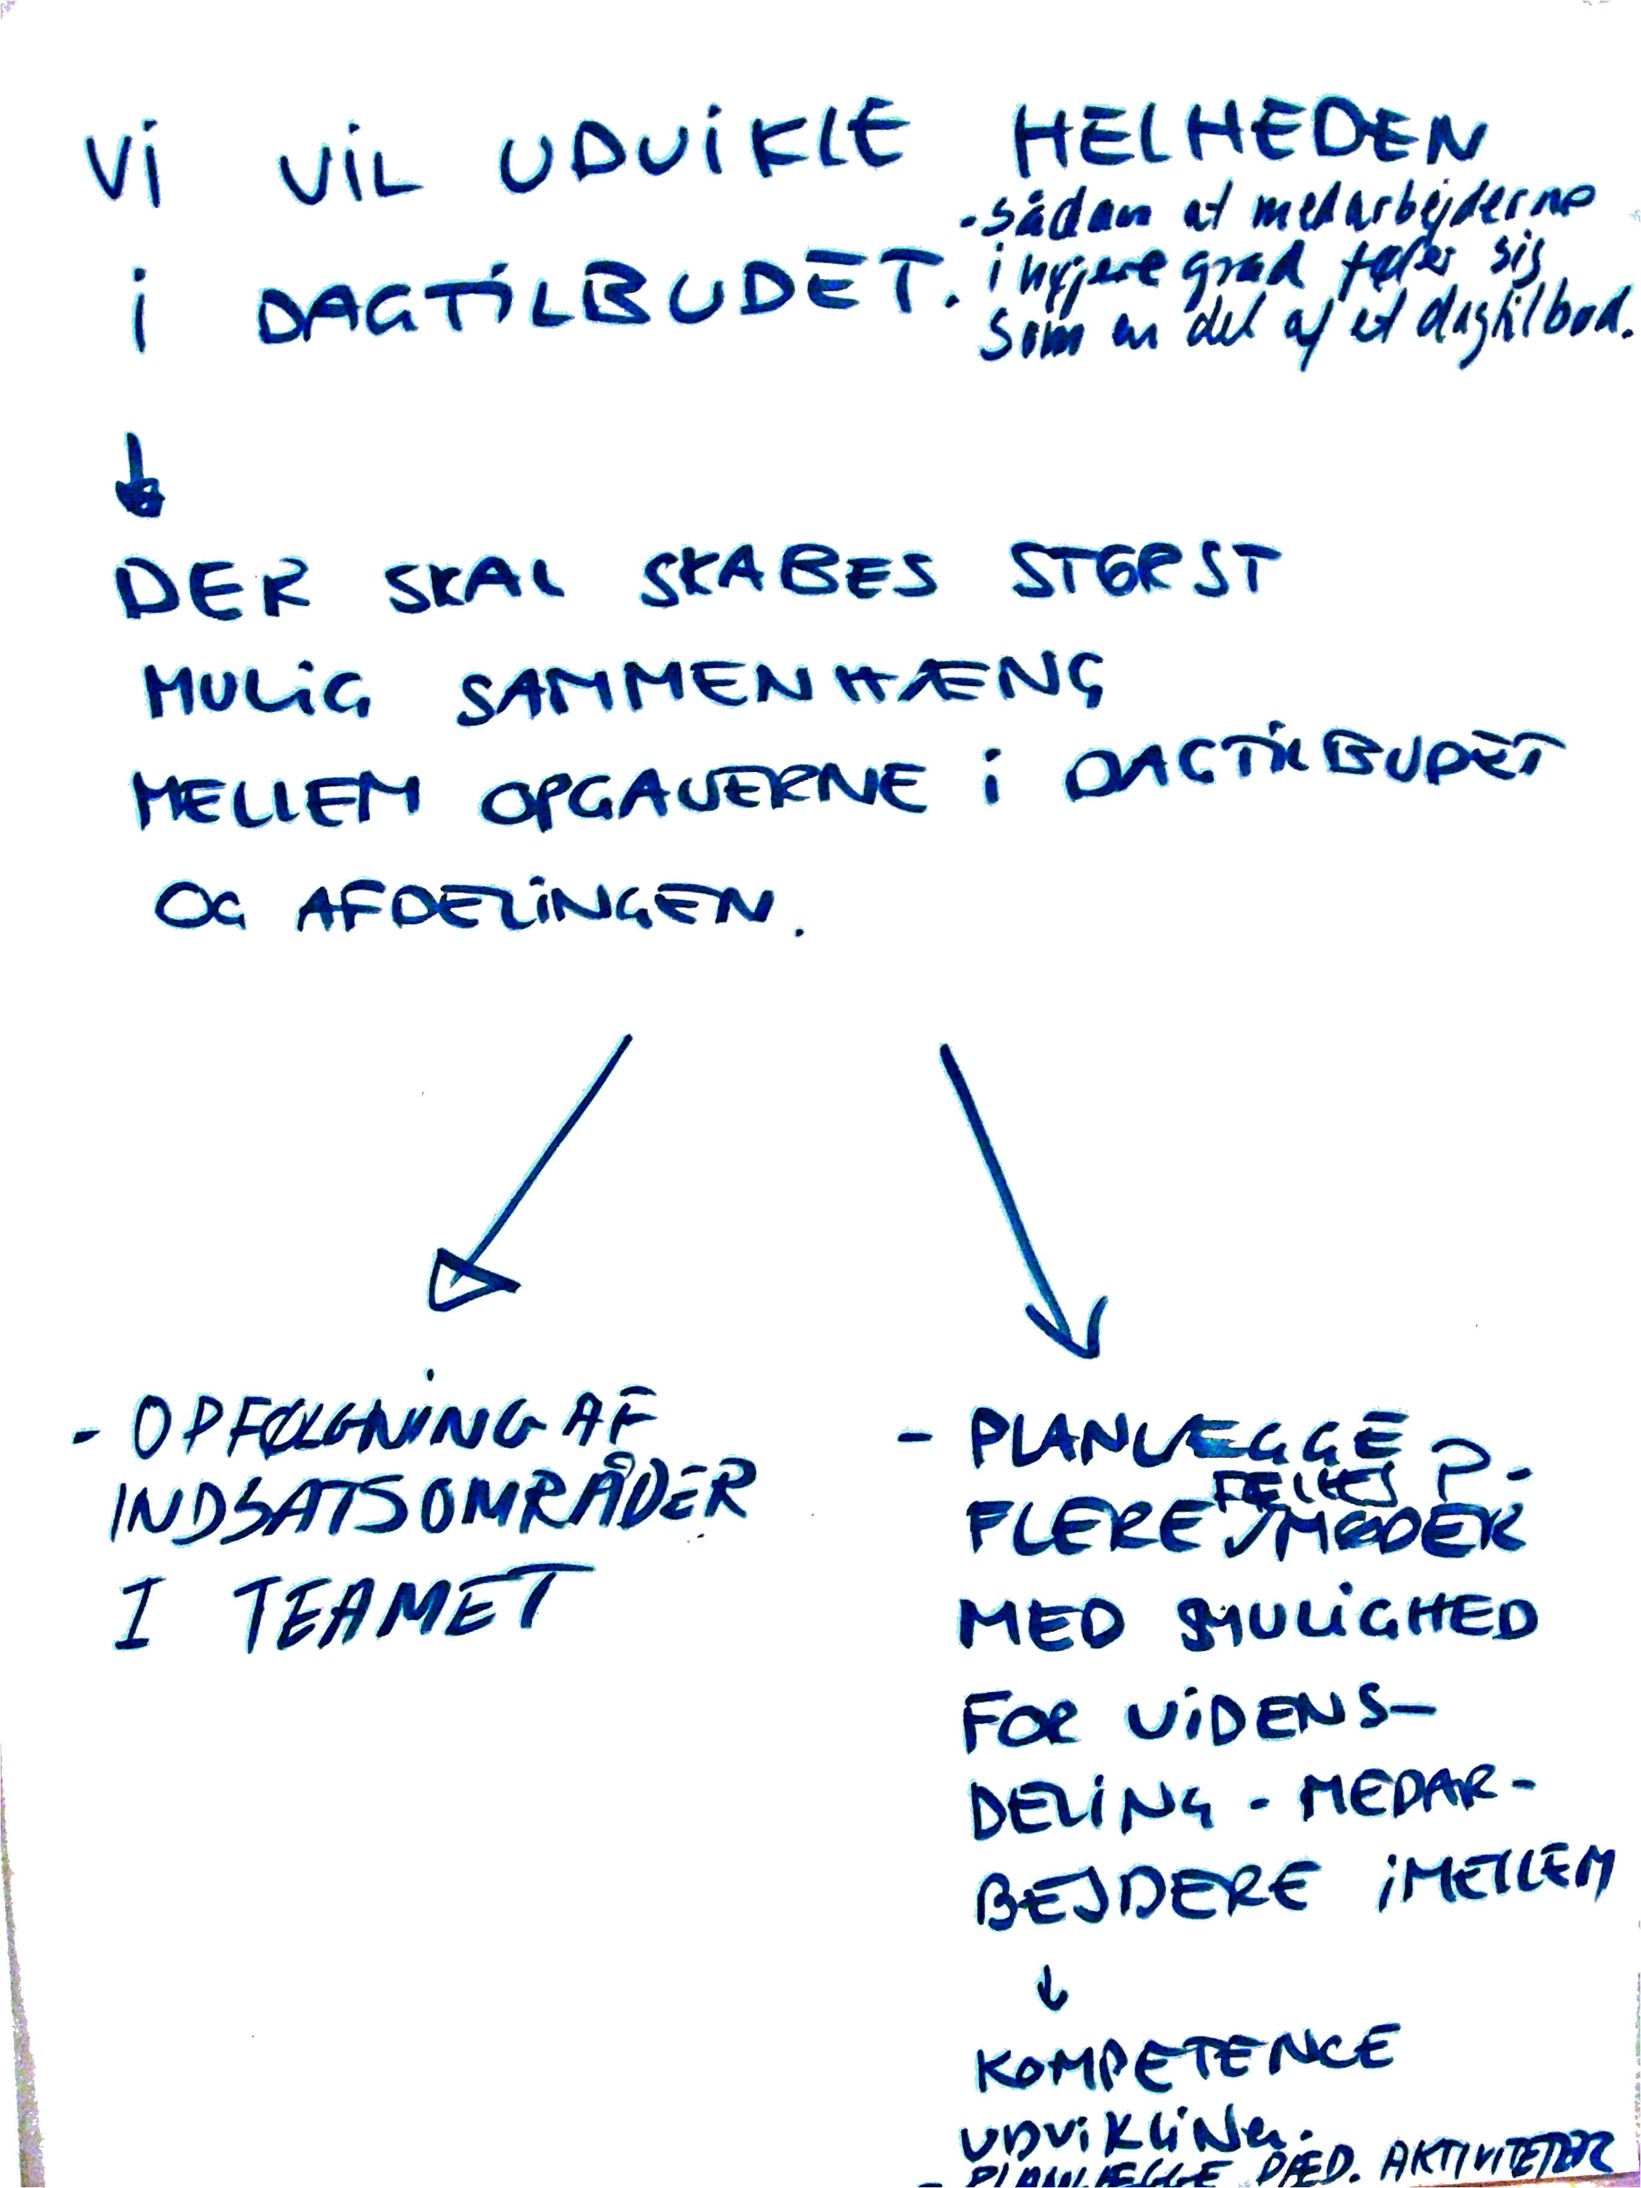 Vi VIL UDVIKLE HELHEDEN
- sådan at medarbejderne
i højere grad føler sig
som en del af et dagtilbud.
i DAGTILBUDET.
DER SKAL SKABES STØRST
MULIG SAMMENHÆNG
MELLEM OPGAVERNE i DAGTILBUDET
OG AFDELINGEN.
- OPFØLGNING AF
INDSATSOMRÅDER
I TEAMET
- PLANLÆGGE P-
FÆLLES
FLERE MØDER
MED MULIGHED
FOR VIDENS-
DELING - MEDAR-
BEJDERE iMELLEM
KOMPETENCE
UDVIKLING.
- PLANLÆGGE PÆD. AKTIVITETER